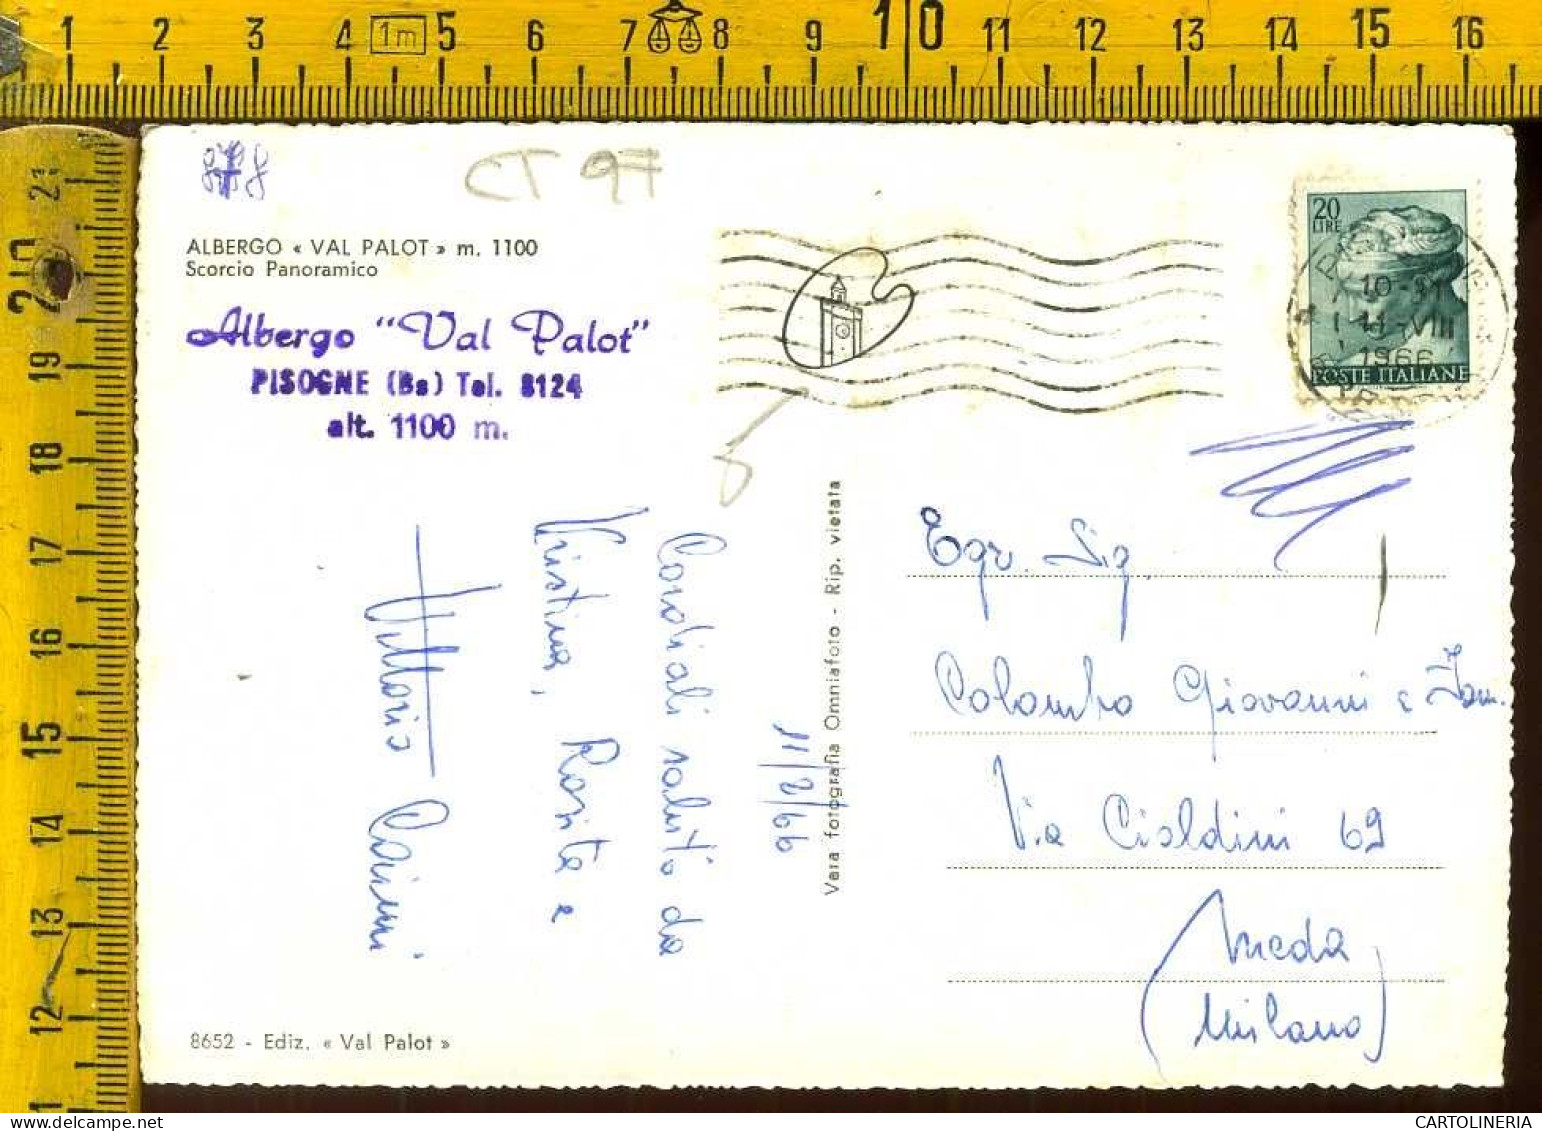 1 2 3 4 1m 5 6 7 8 9 10 11 12 13 14 15 16
21
20
19
18
17
16
15
14
13
12
CT 97
ALBERGO « VAL PALOT » m. 1100
Scorcio Panoramico
Albergo "Val Palot"
PISOGNE (Bs) Tel. 8124
alt. 1100 m.
20
LIRE
1966
POSTE ITALIANE
11/8/66
Cordiali saluti da
Kristina, Rosita e
Vittorio Cairni
Vera fotografia Omniafoto - Rip. vietata
Egr. Sig.
Colombo Giovanni e Fam.
Via Cialdini 69
Meda
(Milano)
8652 - Ediz. « Val Palot »
CARTOLINERIA